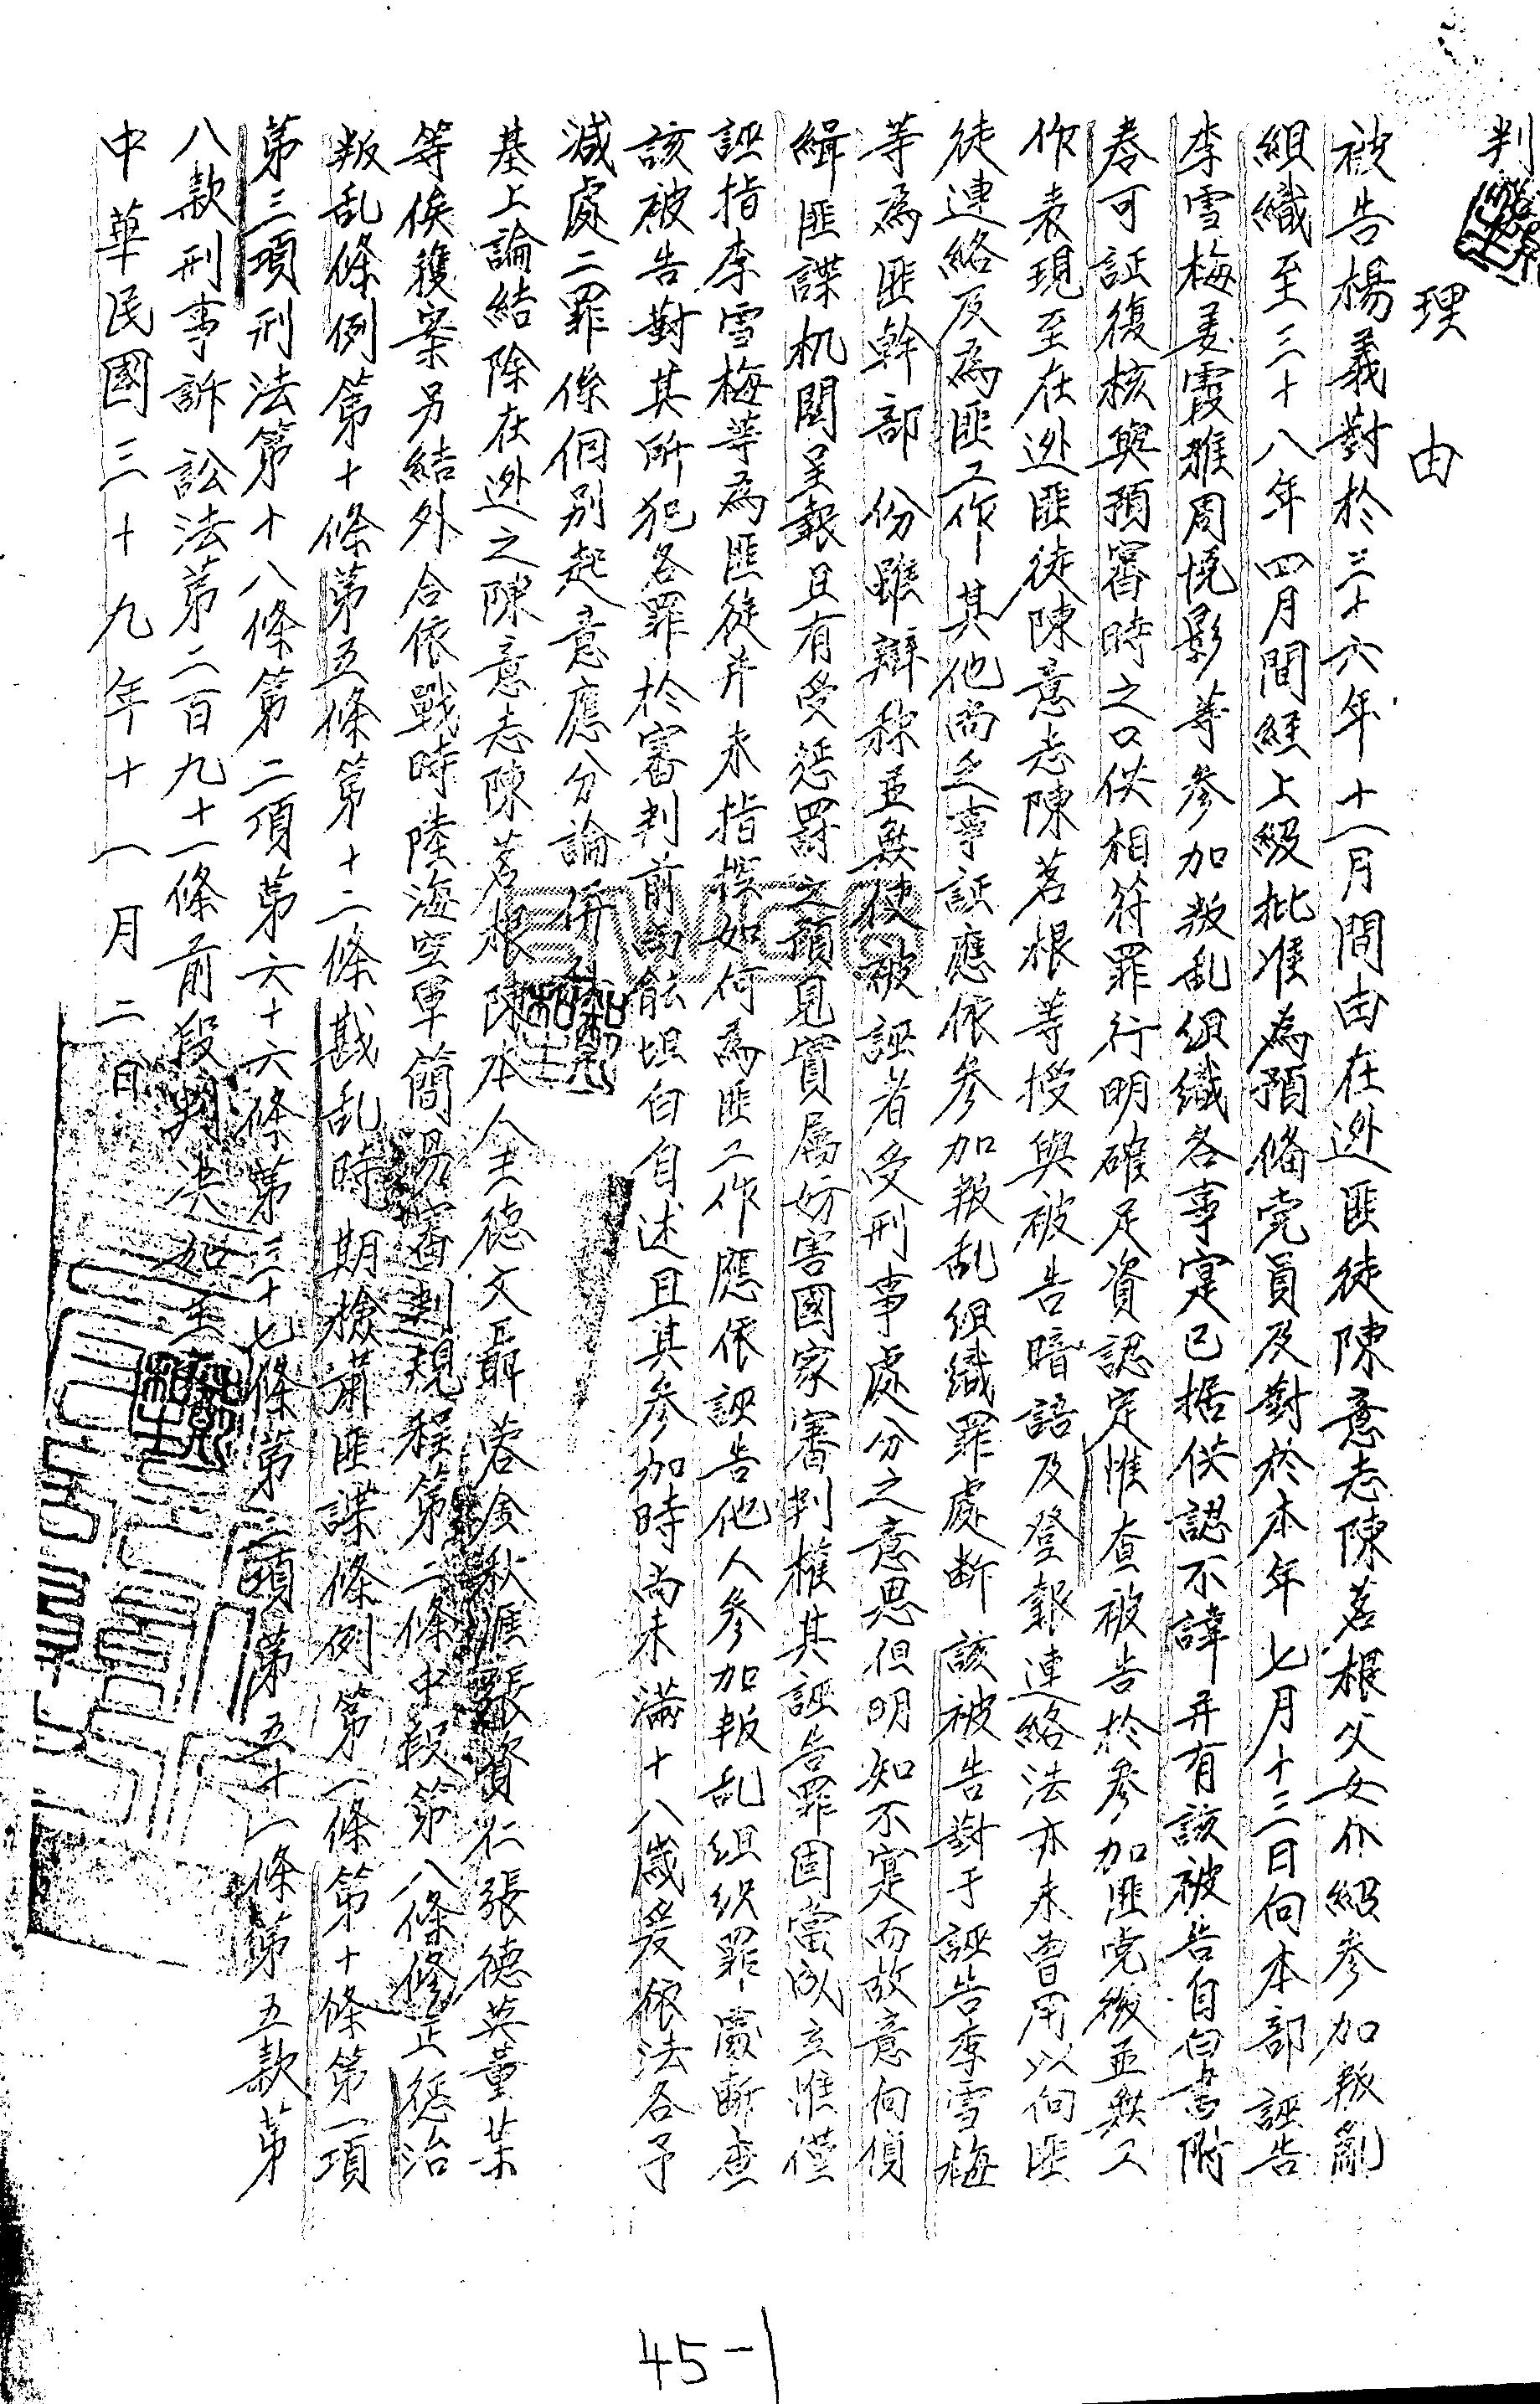 判
理由
被告楊義對於三十六年十一月間由在逃匪徒陳意志陳茗根父女介紹參加叛亂
組織至三十八年四月間經上級批准為預備党員及對於本年七月十三日向本部誣告
李雪梅姜霞雅周悦影等參加叛乱組織各事寔已据供認不諱并有該被告自白書附
卷可証復核與預審時之口供相符罪行明確足資認定惟查被告於參加匪党後並無工
作表現至在逃匪徒陳意志陳茗根等授與被告暗語及登報連絡法亦未曾用以向匪
徒連絡反為匪工作其他尚乏事証應依參加叛乱組織罪處断該被告對于誣告李雪梅
等為匪幹部份雖辯称並無使被誣者受刑事處分之意思但明知不寔而故意向偵
緝匪諜机関呈報且有受惩罰之預見實屬妨害國家審判權其誣告罪固當成立惟僅
誣指李雪梅等為匪徒并未指摆如何為匪工作應依誣告他人參加叛乱組织罪處断查
該被告對其所犯各罪於審判前尚能坦白自述且其參加時尚未滿十八歲爰依法各予
減處二罪係個別起意應分論併
基上論結除在逃之陳意志陳茗根陳本全德文聶蓉金秋涯張資仁張德英董某
等俟獲案另結外合依戰時陸海空軍簡易審判規程第二條中段第八條修正惩治
叛乱條例第十條第五條第十二條戡乱時期檢肅匪諜條例第一條第十條第一項
第三項刑法第十八條第二項第六十六條第三十七條第二項第五十一條第五款第
八款刑事訴訟法第二百九十一條前段判决如主
中華民國三十九年十一月二日
45-1